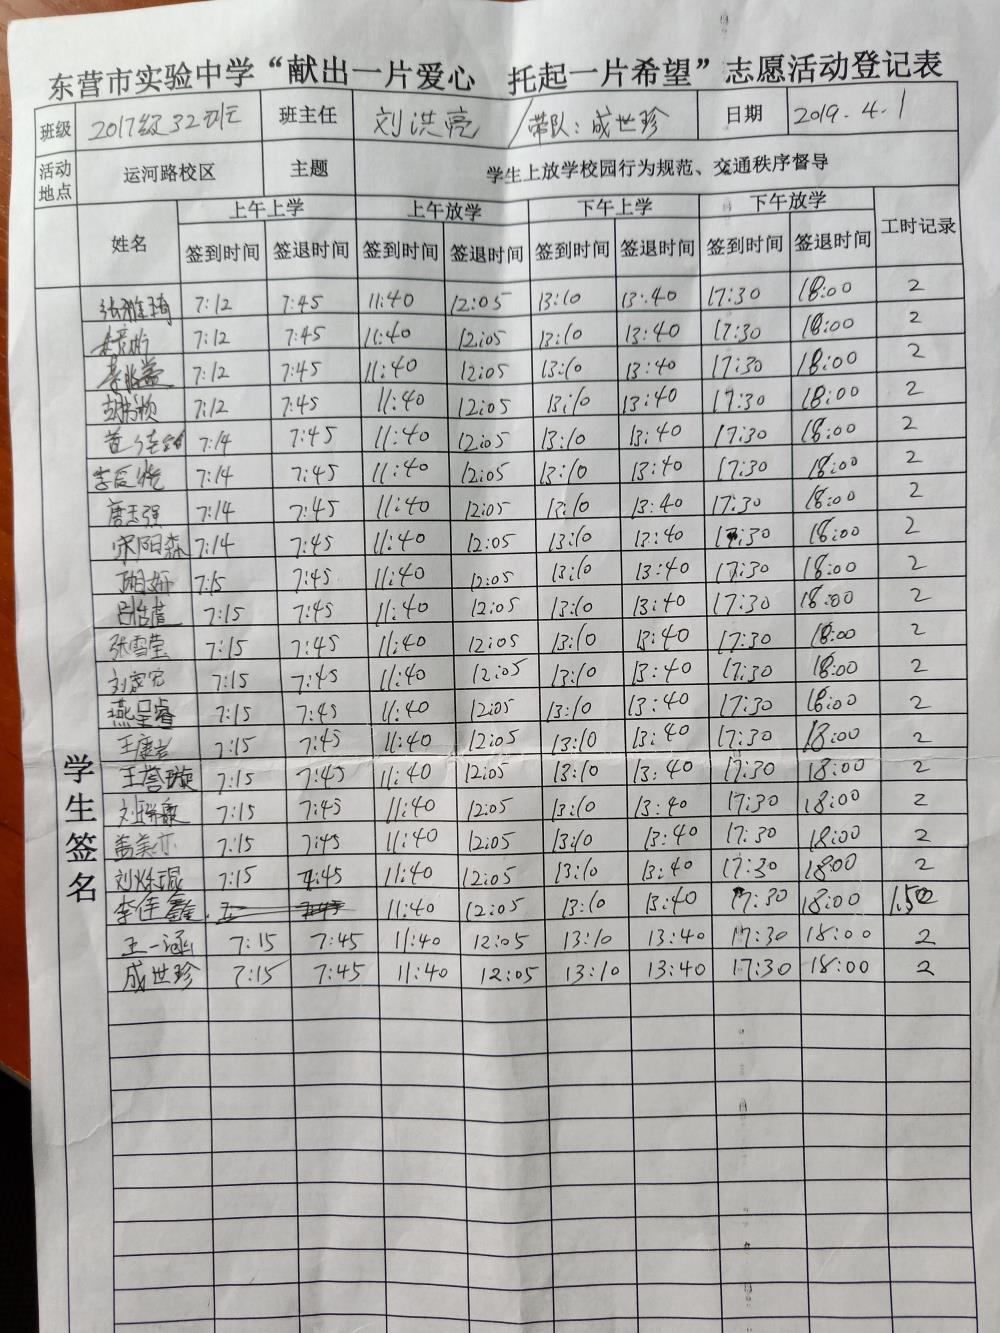 东营市实验中学“献出一片爱心 托起一片希望”志愿活动登记表
班级 2017级32班 班主任 刘洪亮 /带队：成世珍 日期 2019.4.1
活动地点 运河路校区 主题 学生上放学校园行为规范、交通秩序督导
姓名 上午上学 上午放学 下午上学 下午放学 工时记录
签到时间 签退时间 签到时间 签退时间 签到时间 签退时间 签到时间 签退时间
学生签名
张雅琦 7:12 7:45 11:40 12:05 13:10 13:40 17:30 18:00 2
7:12 7:45 11:40 12:05 13:10 13:40 17:30 18:00 2
7:12 7:45 11:40 12:05 13:10 13:40 17:30 18:00 2
7:12 7:45 11:40 12:05 13:10 13:40 17:30 18:00 2
7:14 7:45 11:40 12:05 13:10 13:40 17:30 18:00 2
7:14 7:45 11:40 12:05 13:10 13:40 17:30 18:00 2
唐玉强 7:14 7:45 11:40 12:05 13:10 13:40 17:30 18:00 2
宋阳森 7:14 7:45 11:40 12:05 13:10 13:40 17:30 18:00 2
7:15 7:45 11:40 12:05 13:10 13:40 17:30 18:00 2
7:15 7:45 11:40 12:05 13:10 13:40 17:30 18:00 2
张雪莹 7:15 7:45 11:40 12:05 13:10 13:40 17:30 18:00 2
刘家宏 7:15 7:45 11:40 12:05 13:10 13:40 17:30 18:00 2
燕呈睿 7:15 7:45 11:40 12:05 13:10 13:40 17:30 18:00 2
王康岩 7:15 7:45 11:40 12:05 13:10 13:40 17:30 18:00 2
王誉璇 7:15 7:45 11:40 12:05 13:10 13:40 17:30 18:00 2
7:15 7:45 11:40 12:05 13:10 13:40 17:30 18:00 2
盖美亦 7:15 7:45 11:40 12:05 13:10 13:40 17:30 18:00 2
7:15 7:45 11:40 12:05 13:10 13:40 17:30 1800 2
李佳鑫 11:40 12:05 13:10 13:40 17:30 18:00 1.5
王一涵 7:15 7:45 11:40 12:05 13:10 13:40 17:30 18:00 2
成世珍 7:15 7:45 11:40 12:05 13:10 13:40 17:30 18:00 2